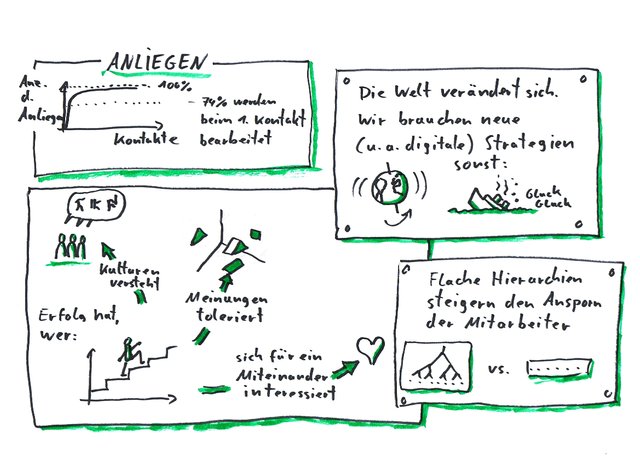 ANLIEGEN
Anz.
d.
Anliegen
100%
74% werden
beim 1. Kontakt
bearbeitet
Kontakte
Die Welt verändert sich.
Wir brauchen neue
(u.a. digitale) Strategien
sonst:
Gluck
Gluck
Kulturen
versteht
Meinungen
toleriert
Erfolg hat,
wer:
sich für ein
Miteinander
interessiert
Flache Hierarchien
steigern den Ansporn
der Mitarbeiter
vs.